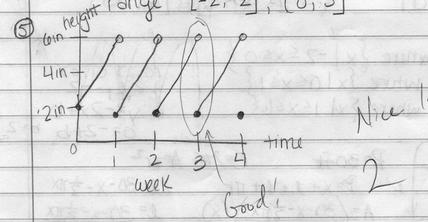 range [-2, 2], (0, 3]
5
height
6in
4in
2in
0 1 2 3 4 time
week
Good!
Nice
2